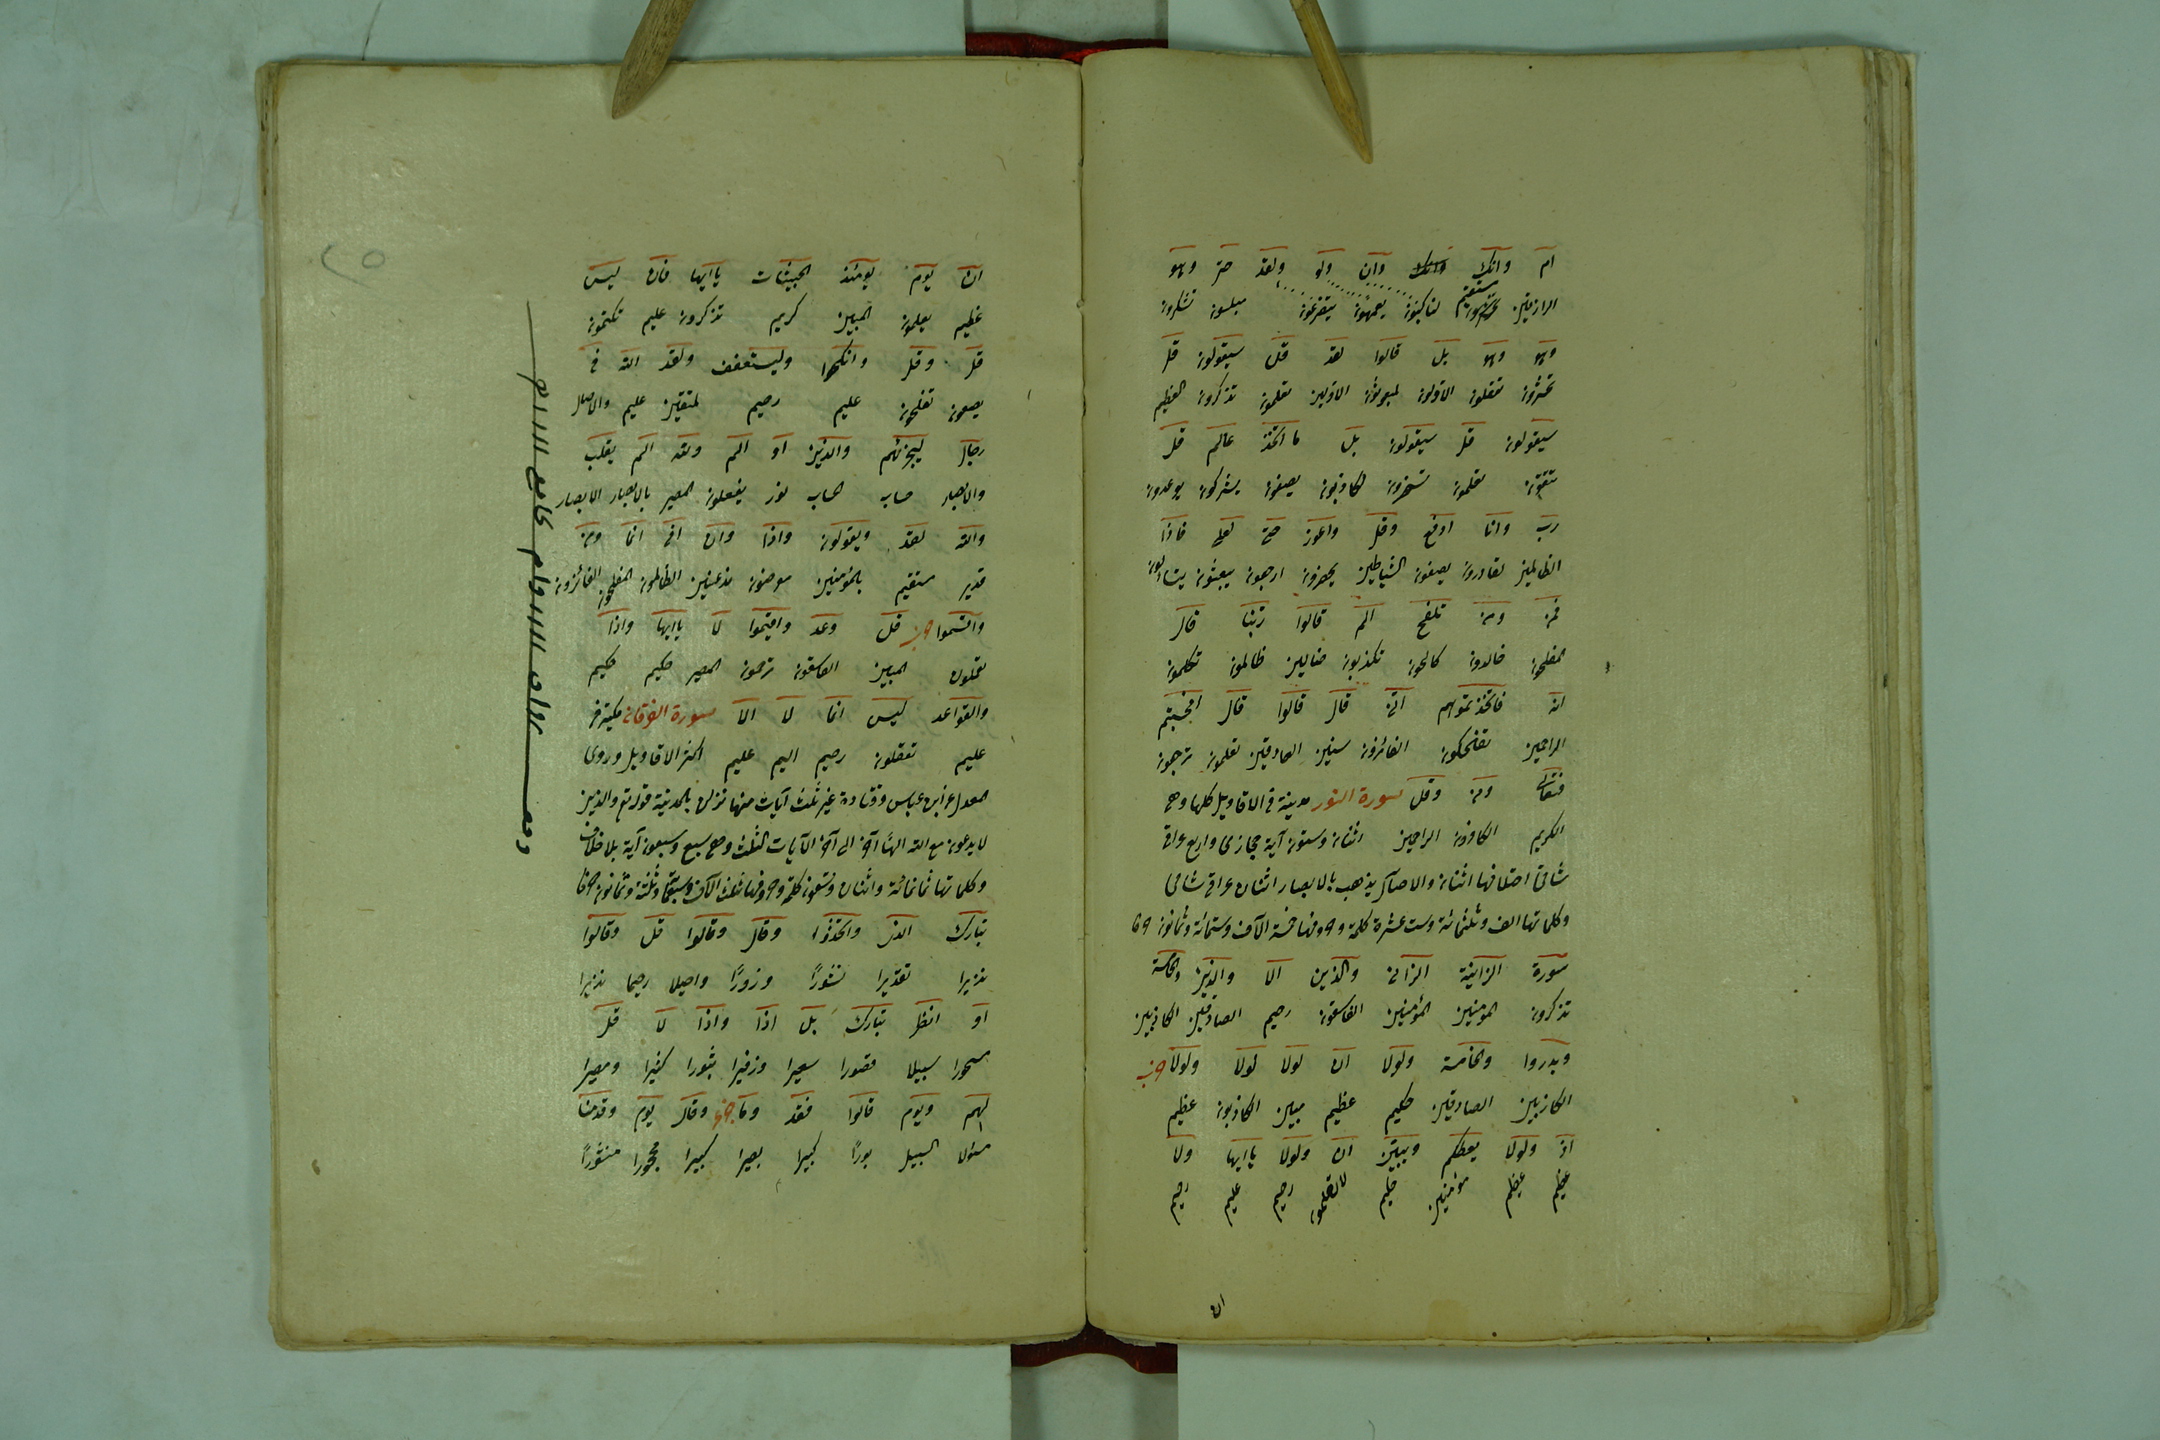 ام وانك وانك وان ولو ولقد حتى وهو
الرازقين مستقيم لناكبون يعمهون يتضرعون مبلسون تشكرون
وهو وهو بل قالوا لقد قل سيقولون قل
تحشرون تعقلون الاولون لمبعوثون الاولين تعلمون تذكرون العظيم
سيقولون قل سيقولون بل ما اتخذ عالم قل
تتقون تعلمون تسحرون لكاذبون يصفون يشركون يوعدون
رب وانا ادفع وقل واعوذ حتى لعلي فاذا
الظالمين لقادرون يصفون الشياطين يحضرون ارجعون يبعثون يتساءلون
فمن ومن تلفح الم قالوا ربنا قال
المفلحون خالدون كالحون تكذبون ضالين ظالمون تكلمون
انه فاتخذتموهم اني قال قالوا قال افحسبتم
الراحمين تضحكون الفائزون سنين العادين تعلمون ترجعون
فتعالى ومن وقل سورة النور مدينة في الاقاويل كلها وهي
الكريم الكافرون الراحمين اثنان وستون آية حجازي واربع عراقي
شامي اختلافها اثنان والاصال يذهب بالابصار اثنان عراقي شامي
وكلماتها الف وثلثمائة وست عشرة كلمة وحروفها خمسة الآف وستمائة وثمانون حرفا
سورة الزانية الزاني والذين الا والذين والخامسة
تذكرون المؤمنين المؤمنين الفاسقون رحيم الصادقين الكاذبين
ويدروا والخامسة ولولا ان لولا لولا ولولا حزب
الكاذبين الصادقين حكيم عظيم مبين الكاذبون عظيم
اذ ولولا يعظكم ويبين ان ولولا ياايها ولا
عظيم عظيم مؤمنين حكيم لا تعلمون رحيم عليم رحيم
ان
ان يوم يومئذ الخبيثات ياايها فان ليس
عظيم يعلمون المبين كريم تذكرون عليم تكتمون
قل وقل وانكحوا وليستعفف ولقد الله في
يصنعون تفلحون عليم رحيم للمتقين عليم والاصال
رجال ليجزيهم والذين او الم ولله الم يقلب
والابصار حساب الحساب نور يفعلون المصير بالابصار الابصار
والله لقد ويقولون واذا وان افي انما ومن
قدير مستقيم بالمؤمنين معرضون مذعنين الظالمون المفلحون الفائزون
واقسموا حزب قل وعد واقيموا لا ياايها واذا
تعملون المبين الفاسقون ترحمون المصير حكيم حكيم
والقواعد ليس انما لا الا سورة الفرقان مكية في
عليم تعقلون رحيم اليم عليم اكثر الاقاويل وروى
المعدل عن ابن عباس وقتادة غير ثلث آيات منها نزلن بالمدينة قوله تع والذين
لا يدعون مع الله الهًا آخر الى آخر الآيات الثلث وهي سبع وسبعون آية بلا خلاف
وكلماتها ثمانمائة واثنان وتسعون كلمة وحروفها ثلث الآف وسبعمائة وثلثة وثمانون حرفا
تبارك الذى واتخذوا وقال وقالوا قل وقالوا
نذيرا تقديرا نشورًا وزورًا واصيلا رحيما نذيرا
او انظر تبارك بل اذا واذا لا قل
مسحورا سبيلا قصورا سعيرا وزفيرا ثبورا كثيرا ومصيرا
لهم ويوم قالوا فقد وما وقال يوم وقدمنا
مسئولا السبيل بورًا كبيرا بصيرا كبيرا محجورا منثورًا